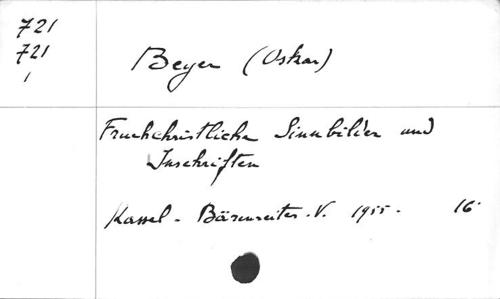 721
721
1
Beyer (Oskar)
Fruehchristliche Sinnbilder und
Inschriften
Kassel - Bärenreiter. V. 1955. 16